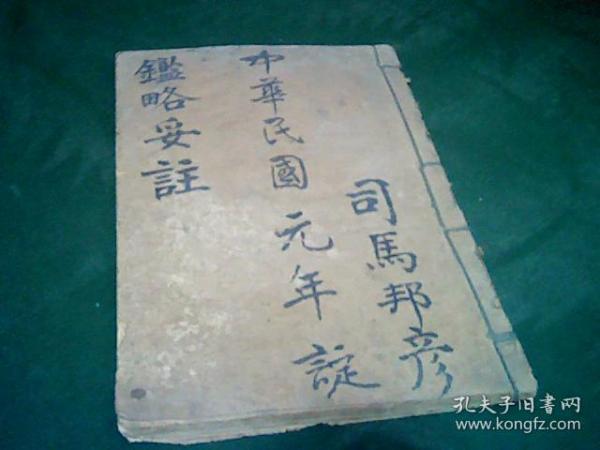 司馬邦彦
中華民國元年諚
鑑略妥註
孔夫子旧書网
www.kongfz.com